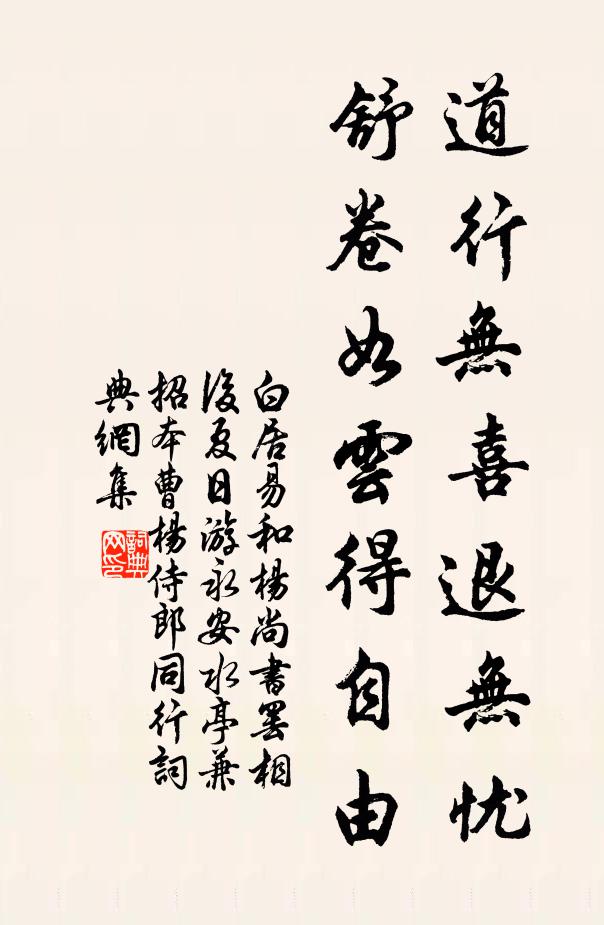 道行無喜退無忧
舒卷如雲得自由
白居易和楊尚書罢相
後夏日游永安水亭兼
招本曹楊侍郎同行詞
典網集
詞典网印